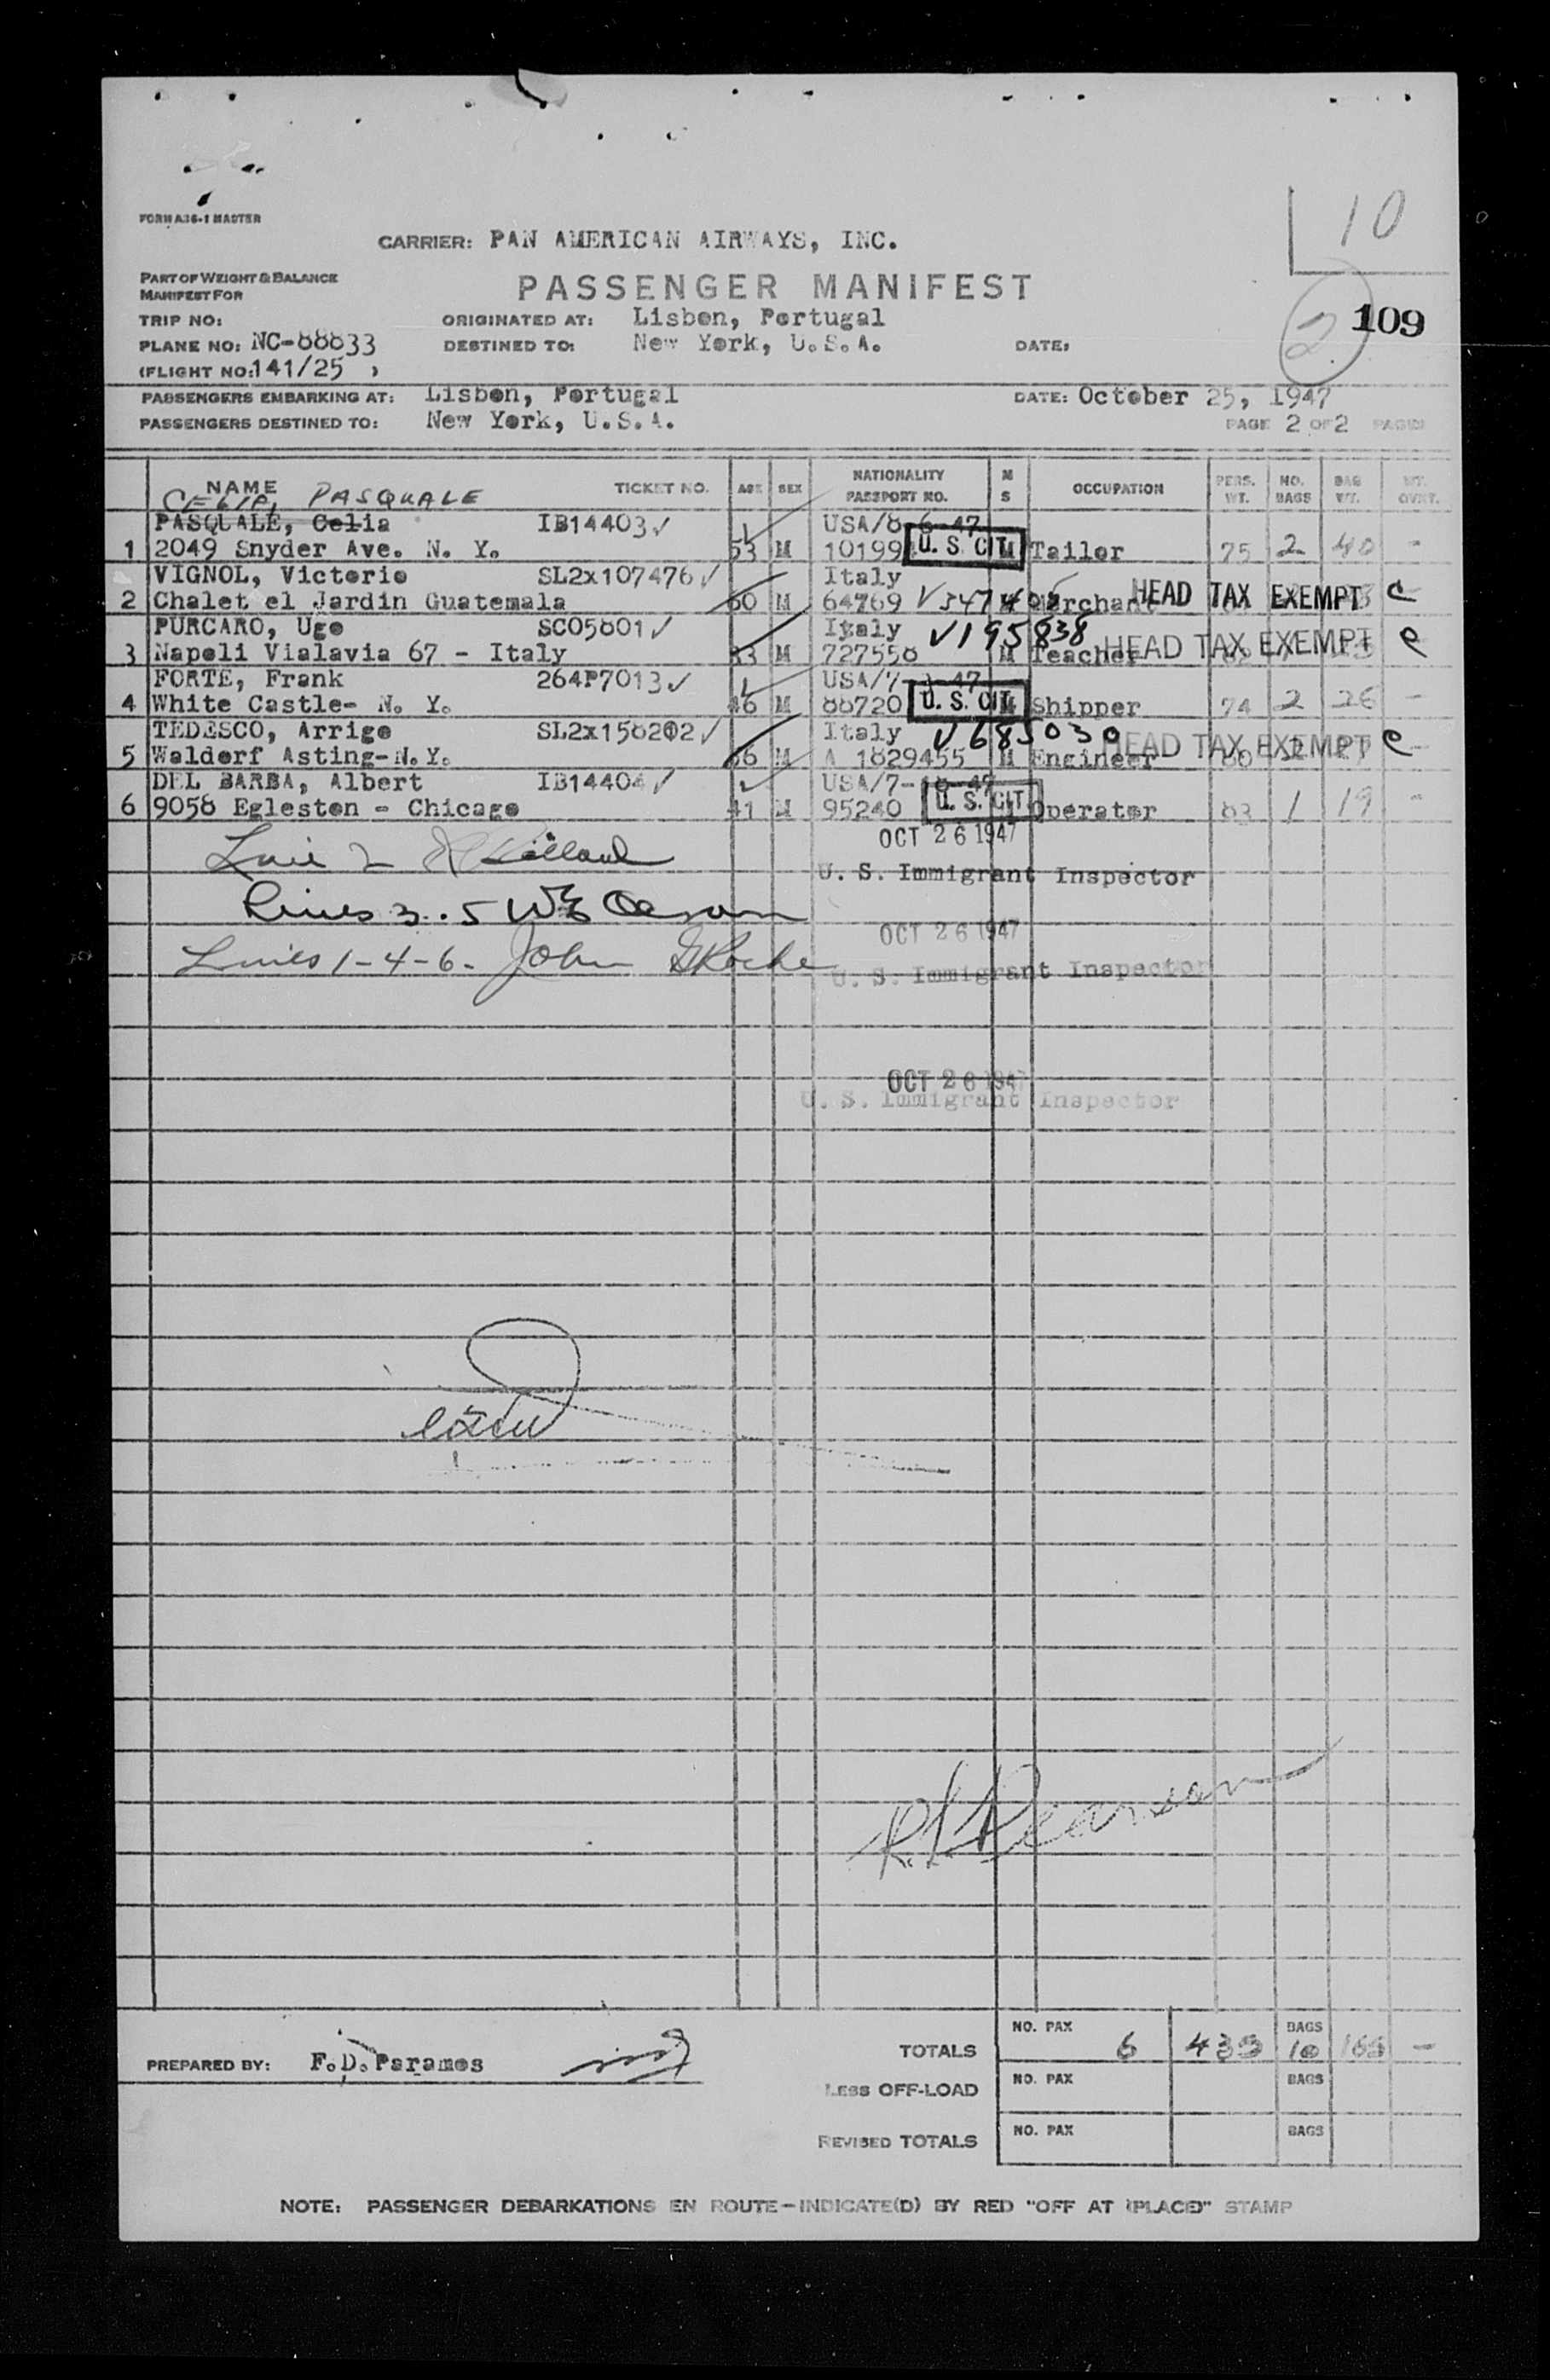 10
FORM A36-1 MASTER
CARRIER: PAN AMERICAN AIRWAYS, INC.
PART OF WEIGHT & BALANCE
MANIFEST FOR
PASSENGER MANIFEST
2 109
TRIP NO: ORIGINATED AT: Lisbon, Portugal
PLANE NO: NC-88833 DESTINED TO: New York, U.S.A. DATE:
(FLIGHT NO: 141/25 )
PASSENGERS EMBARKING AT: Lisbon, Portugal DATE: October 25, 1947
PASSENGERS DESTINED TO: New York, U.S.A. PAGE 2 OF 2 PAGES
NAME TICKET NO. AGE SEX NATIONALITY PASSPORT NO. M S OCCUPATION PERS. WT. NO. BAGS BAG WT. WT. OVWT.
CELIA, PASQUALE
PASQUALE, Celia IB14403 ✓ USA/8-6-47
1 2049 Snyder Ave. N. Y. 53 M 10199 U. S. CIT. M Tailor 75 2 40 -
VIGNOL, Victorio SL2x107476 ✓ Italy
2 Chalet el Jardin Guatemala 60 M 64769 Merchant HEAD TAX EXEMPT e
PURCARO, Ugo SC05801 ✓ Italy V195838
3 Napoli Vialavia 67 - Italy 33 M 727558 M Teacher HEAD TAX EXEMPT e
FORTE, Frank 264P7013 ✓ USA/7- -47
4 White Castle- N. Y. 46 M 88720 U. S. CIT. Shipper 74 2 26 -
TEDESCO, Arrigo SL2x158202 ✓ Italy V685030
5 Waldorf Asting-N.Y. M A 1829455 M Engineer HEAD TAX EXEMPT e
DEL BARBA, Albert IB14404 ✓ USA/7- -47
6 9058 Egleston - Chicago 41 M 95240 U. S. CIT. Operator 83 1 19 -
OCT 26 1947
Line 2
U. S. Immigrant Inspector
Lines 3.5
OCT 26 1947
Lines 1-4-6. John
U. S. Immigrant Inspector
OCT 26 1947
U. S. Immigrant Inspector
R. Pearson
PREPARED BY: F.D. Paramos
TOTALS NO. PAX 6 BAGS 10 -
LESS OFF-LOAD NO. PAX BAGS
REVISED TOTALS NO. PAX BAGS
NOTE: PASSENGER DEBARKATIONS EN ROUTE-INDICATE(D) BY RED "OFF AT (PLACE)" STAMP